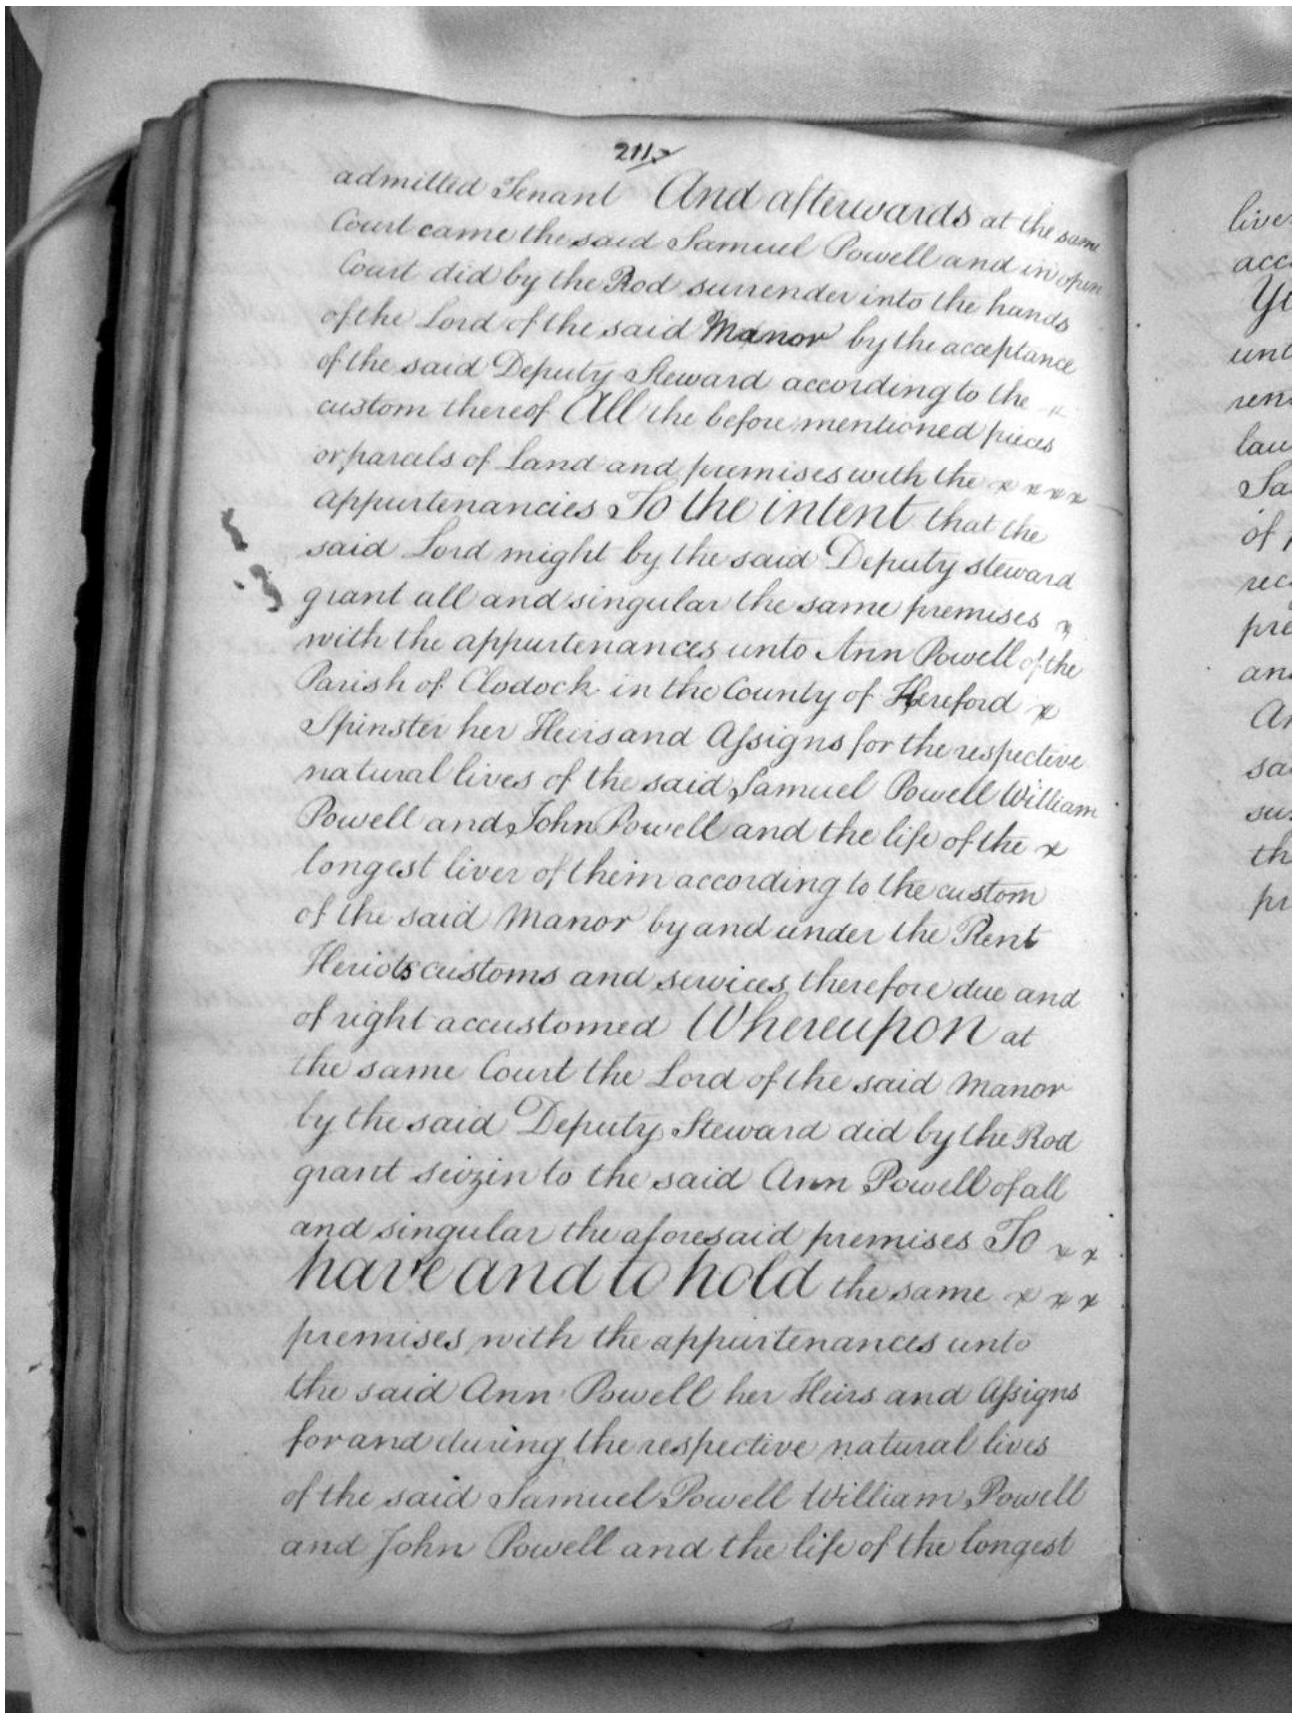 211.
admitted Tenant And afterwards at the same
Court came the said Samuel Powell and in open
Court did by the Rod surrender into the hands
of the Lord of the said Manor by the acceptance
of the said Deputy Steward according to the
custom thereof All the before mentioned pieces
or parcels of Land and premises with the x x x x
appurtenancies To the intent that the
said Lord might by the said Deputy steward
grant all and singular the same premises x
with the appurtenances unto Ann Powell of the
Parish of Clodock in the County of Hereford x
Spinster her Heirs and Assigns for the respective
natural lives of the said Samuel Powell William
Powell and John Powell and the life of the x
longest liver of them according to the custom
of the said Manor by and under the Rent
Heriots customs and services therefore due and
of right accustomed Whereupon at
the same Court the Lord of the said Manor
by the said Deputy Steward did by the Rod
grant seizin to the said Ann Powell of all
and singular the aforesaid premises To x x
have and to hold the same x x x
premises with the appurtenances unto
the said Ann Powell her Heirs and Assigns
for and during the respective natural lives
of the said Samuel Powell William Powell
and John Powell and the life of the longest